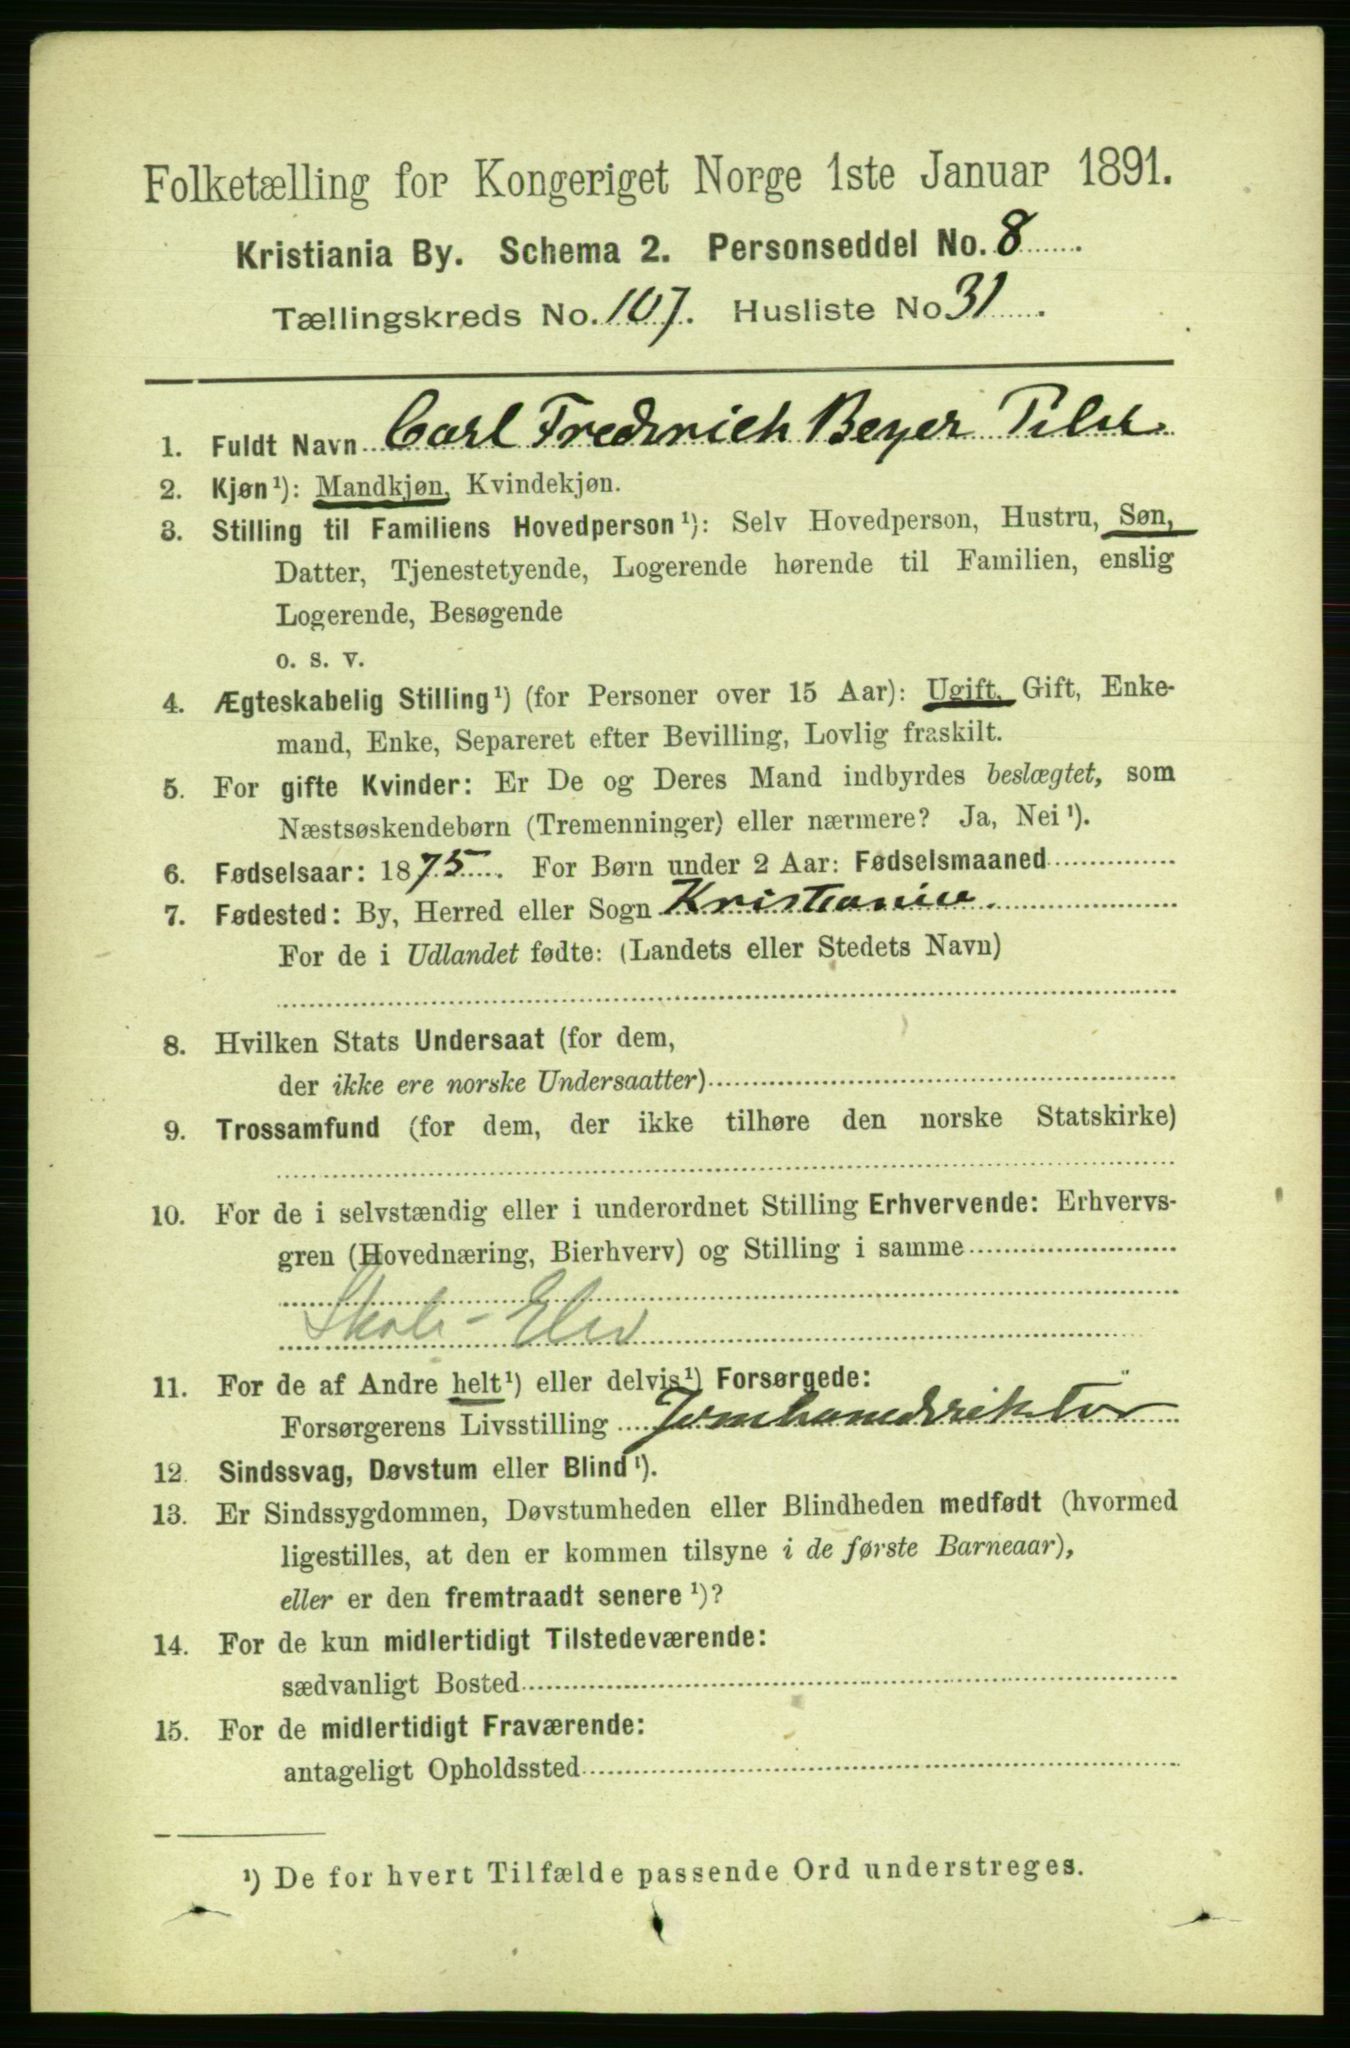 Folketælling for Kongeriget Norge 1ste Januar 1891.
Kristiania By. Schema 2. Personseddel No. 8
Tællingskreds No. 107. Husliste No 31.
1. Fuldt Navn Carl Fredrich Beyer
2. Kjøn¹): Mandkjøn, Kvindekjøn.
3. Stilling til Familiens Hovedperson¹): Selv Hovedperson, Hustru, Søn,
Datter, Tjenestetyende, Logerende hørende til Familien, enslig
Logerende, Besøgende
o. s. v.
4. Ægteskabelig Stilling¹) (for Personer over 15 Aar): Ugift, Gift, Enke-
mand, Enke, Separeret efter Bevilling, Lovlig fraskilt.
5. For gifte Kvinder: Er De og Deres Mand indbyrdes beslægtet, som
Næstsøskendebørn (Tremenninger) eller nærmere? Ja, Nei¹).
6. Fødselsaar: 1875. For Børn under 2 Aar: Fødselsmaaned
7. Fødested: By, Herred eller Sogn Kristiania.
For de i Udlandet fødte: (Landets eller Stedets Navn)
8. Hvilken Stats Undersaat (for dem,
der ikke ere norske Undersaatter)
9. Trossamfund (for dem, der ikke tilhøre den norske Statskirke)
10. For de i selvstændig eller i underordnet Stilling Erhvervende: Erhvervs-
gren (Hovednæring, Bierhverv) og Stilling i samme
Skole-Elev
11. For de af Andre helt¹) eller delvis¹) Forsørgede:
Forsørgerens Livsstilling
12. Sindssvag, Døvstum eller Blind¹).
13. Er Sindssygdommen, Døvstumheden eller Blindheden medfødt (hvormed
ligestilles, at den er kommen tilsyne i de første Barneaar),
eller er den fremtraadt senere¹)?
14. For de kun midlertidigt Tilstedeværende:
sædvanligt Bosted
15. For de midlertidigt Fraværende:
antageligt Opholdssted
¹) De for hvert Tilfælde passende Ord understreges.